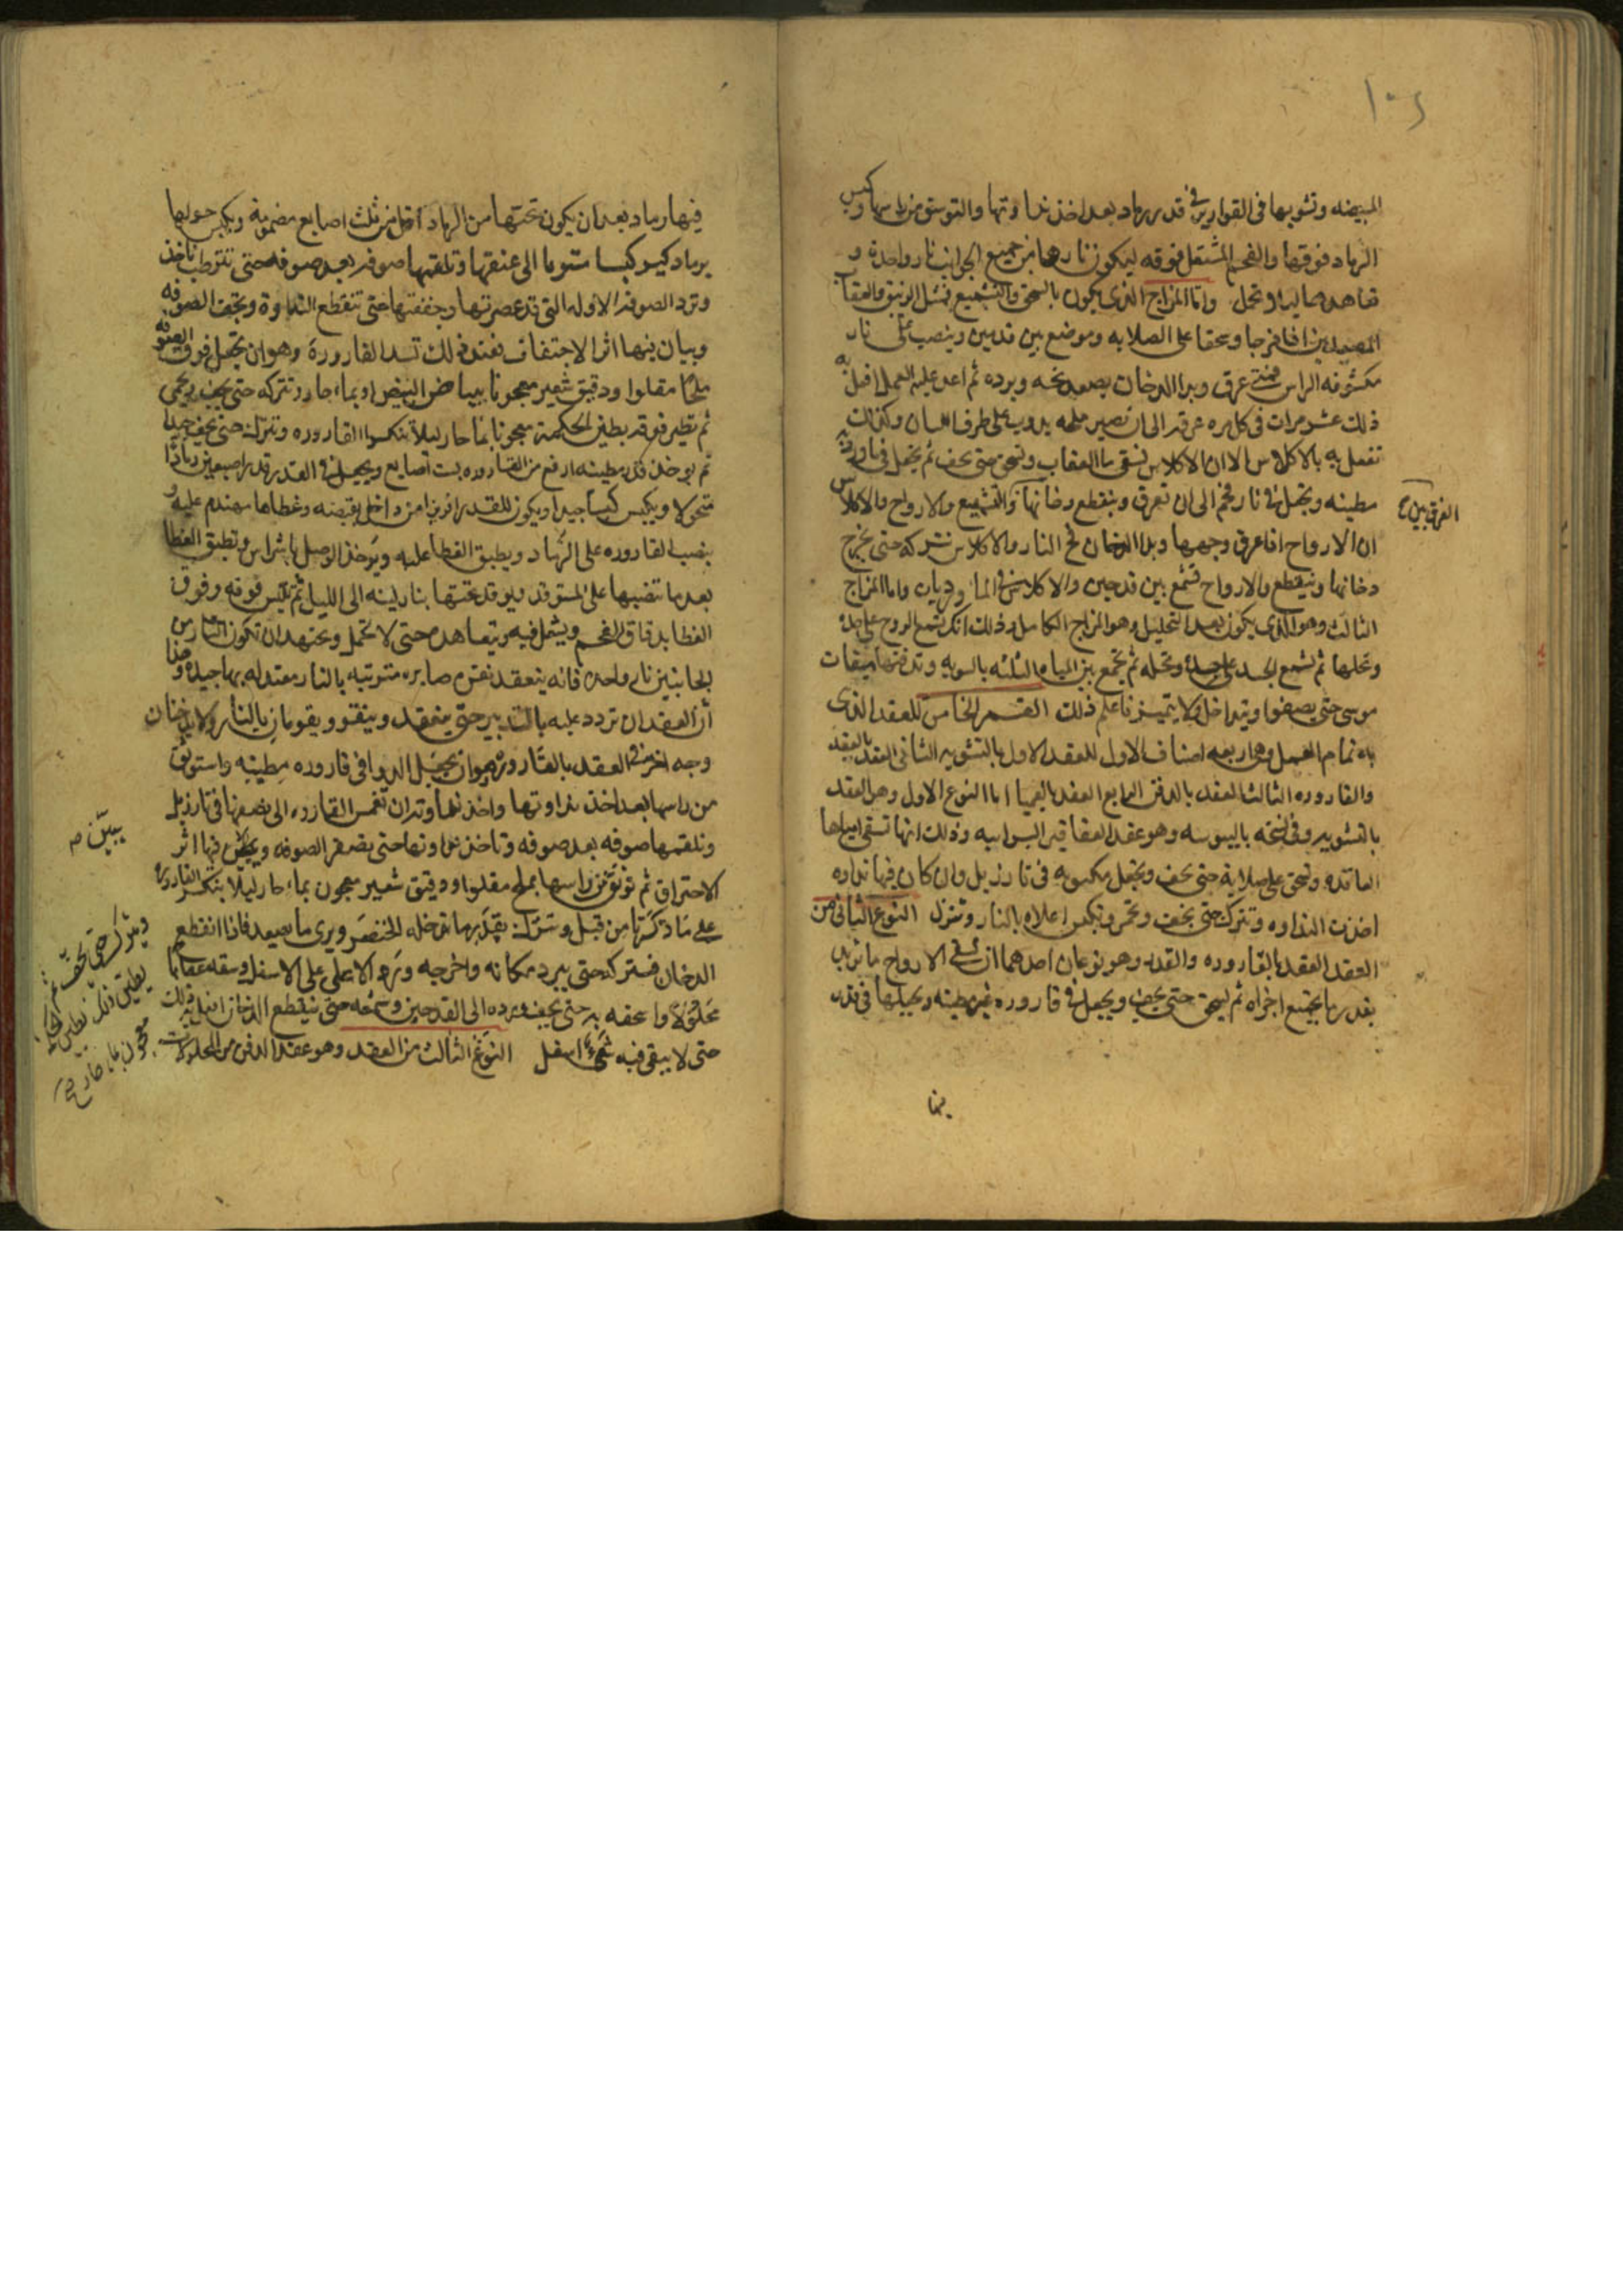 ١٠٢
المبيضه وتشويها فى القوارير فى قدر رماد بعد اخذ نداوتها والتوثق من راسها وكبس
الرماد فوقها والفحم المشتعل فوقه ليكون نارها من جميع الجوانب نار واحدة و
تعاهدها ليلا وتحمل واما المزاج الذى يكون بالسحق والتشميع فمثل الزيبق والعقاب
المصعدين اذا مزجا وسحقا على الصلابه وموضع بين قدحين وينصب على نار
مكشوفه الراس حتى عرق وبدا الدخان يصعد نحه وبرده ثم اعد عليه العمل افعل به
ذلك عشر مرات فى كل مره عرقه الى ان تصير ملحه يذوب على طرف اللسان وكذلك
تفعل به بالاكلاس الا ان الاكلاس تسقى ما العقاب وتسحق حتى يجف ثم يجعل فى قارورة
مطينه وتجعل فى نار فحم الى ان تعرق وينقطع دخانها والتشميع والارواح والاكلاس
الفرق بين
ان الارواح اذا عرق وجهها وبدا الدخان نح النار والاكلاس تتركه حتى يخرج
دخانها وينقطع والارواح تشمع بين قدحين والاكلاس فى الما و واما المزاج
الثالث وهو الذى يكون بعد التحليل وهو المزاج الكامل وذلك انك تشمع الروح على حده
وتحلها ثم تشمع الجسد على حده وتحله ثم تجمع بين المياه الثلثه بالسويه وتدفنها ميقات
موسى حتى يصفوا ويتداخل ولا يتميز فاعلم ذلك القسم الخامس للعقد الذى
به تمام العمل وهى اربعه اصناف الاول العقد الاول بالتشويه الثانى العقد بالقدر
والقاروره الثالث العقد بالدفن الرابع العقد بالعميا اما النوع الاول وهو العقد
بالتشويه وفى نسخه باليبوسه وهو عقد العقاقير البورانيه وذلك انها تسقى امياها
العاقده وتسحق على صلابة حتى يجف وتجعل مكبوبه فى نار زبل وان كان فيها نداوه
اخذت النداوه وتترك حتى يجف وتخمر ويكبس اعلاه بالنار وتنزل النوع الثانى من
العقد العقد بالقاروره والقدر وهو نوعان احدهما ان تسقى الارواح ما تريد
بقدر ما يجتمع اجزاه ثم ليسحق حتى يجف ويجعل فى قاروره غير مطينه ويجعلها فى قدر
فيها
فيها رماد بعد ان يكون تحتها من الرماد اقل من ثلث اصابع مضمومة ويكبس حولها
برماد كبسا مستويا الى عنقها وتلقمها صوفه بعد صوفه حتى تترطب تاخذ
وترد الصوفه الاوله التى قد عصرتها وجففتها حتى تنقطع النداوة وتجف الصوفه
وبيان فيها اثر الاحتفاف فعند ذلك تسد القارورة وهو ان تجعل فوق الصوفه
ملحًا مقلوا ودقيق شعير معجونا ببياض البيض او بماء حار وتتركه حتى يجف ويحمى
ثم تطين فوقه بطين الحكمة معجونا بما حار ليلا تنكسر القاروره وتتركه حتى يجف جيدا
ثم يوخذ قدر مطينه ارفع من القاروره بست اصابع ويجعل فى القدر قدر اصبعين رمادا
منخولا ويكبس كبسا جيدا ويكون للقدر افريز من داخل يقبضه وغطاها مهندم عليه و
ينصب القاروره على الرماد ويطبق الغطا عليه ويوخذ الوصل باشراس وتطبق الغطا
بعد ما تنصبها على المستوقد ويوقد تحتها بنار لينه الى الليل ثم تلبس فوقه وفوق
الغطا بدقاق الفحم ويشعل فيه ويتعاهده حتى لا تحمل ويجتهد ان تكون النار من
الجانبين نار واحده فانه ينعقد نقره صابره مترتبه بالنار معتدله بها جيده وهذا
ان العقد ان تردد عليه بالتدبير حتى ينعقد وينقو ويقومان بالنار ولا يدخنان
وجه اخر فى العقد بالقاروره وهو ان تجعل الدوا فى قاروره مطينه واستوثق
من راسها بعد اخذ نداوتها واخذ نداوته ان تغمس القاروره الى نصفها فى نار زبل
وتلقمها صوفه بعد صوفه وتاخذ نداوتها حتى يصفر الصوفه ويكون فيها اثر
يبيّن م
الاحتراق ثم توثق من راسها بملح مقلو ودقيق شعير معجون بماء حار ليلا تنكسر القاروره
على ماذكرتها من قبل وتترك بقدر ما تدخله الخنصر ويرى ما يصعد فاذا انقطع
الدخان فتتركه حتى يبرد مكانه واخرجه ورد الاعلى على الاسفل وسقه عقابا
محلولا واسحقه به حتى يجف ورده الى القدحين وشمعه حتى ينقطع الدخان افعل به ذلك
حتى لا يبقى فيه شىء اسفل النوع الثالث من العقد وهو عقد الدفن من المحلولات
ويترك حتى يجف ثم
يطين ذلك بطين الحكمة
معجون بما حار